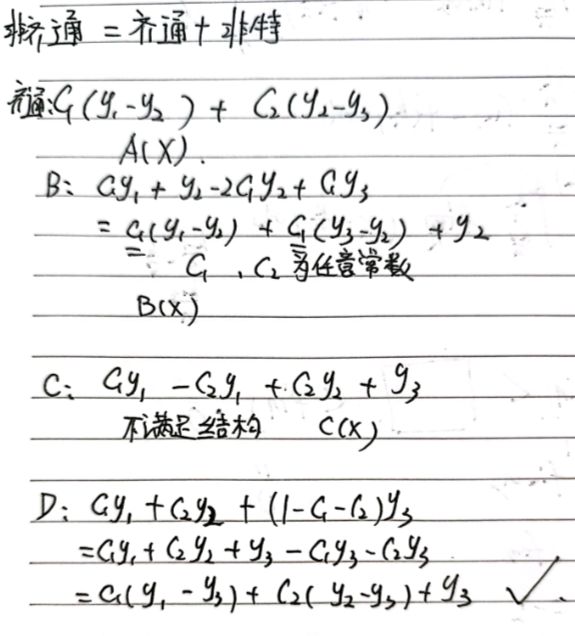 非齐通 = 齐通 + 非特
齐通: C₁(y₁-y₂) + C₂(y₂-y₃)
A(X).
B: C₁y₁ + y₂-2C₁y₂ + C₁y₃
= C₁(y₁-y₂) + C₁(y₃-y₂) + y₂
C₁, C₂ 为任意常数
B(X)
C: C₁y₁ - C₂y₁ + C₂y₂ + y₃
不满足结构 C(X)
D: C₁y₁ + C₂y₂ + (1-C₁-C₂)y₃
=C₁y₁ + C₂y₂ + y₃ - C₁y₃ - C₂y₃
= C₁(y₁ - y₃) + C₂(y₂-y₃) + y₃ ✓.